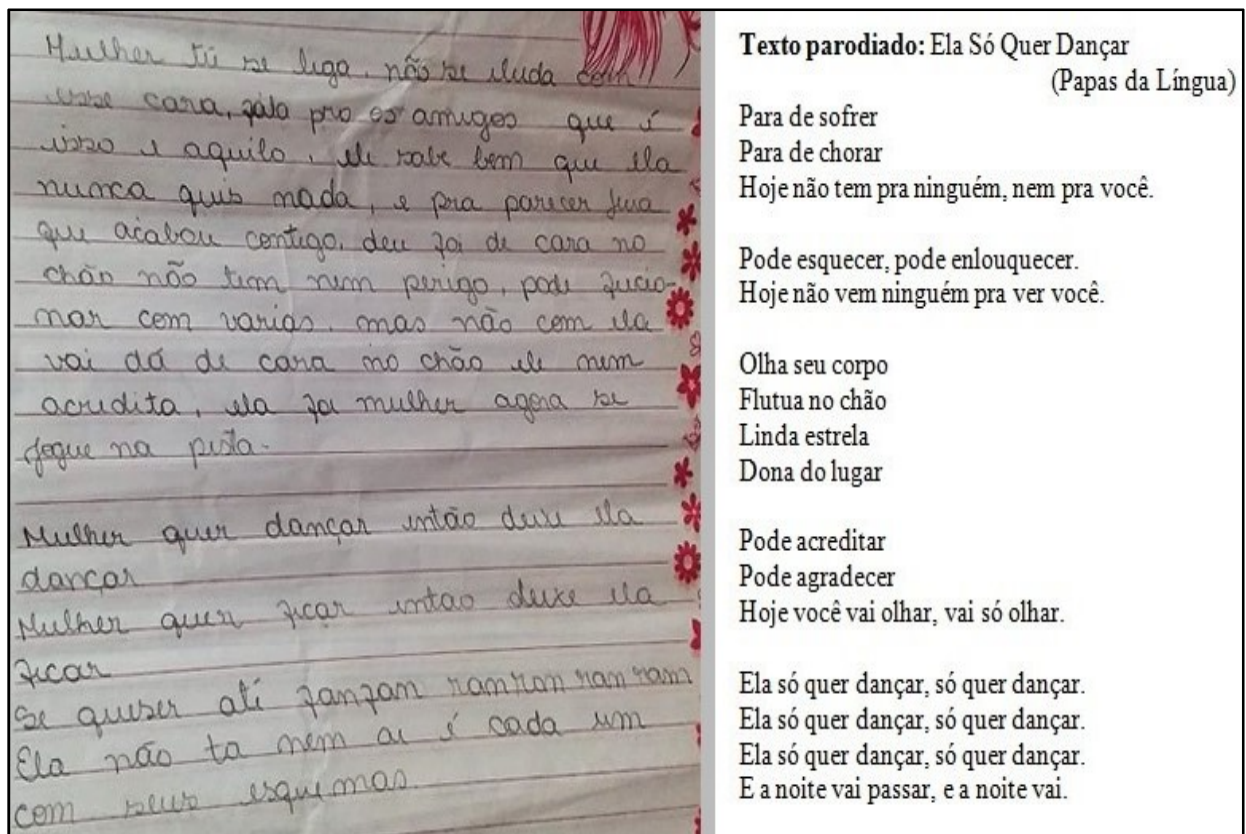 Mulher tú se liga, não se iluda com
esse cara, fala pro os amigos que é
isso e aquilo, ele sabe bem que ela
nunca quis nada, e pra parecer
que acabou contigo, deu foi de cara no
chão não tem nem perigo, pode fucio-
nar com varias, mas não com ela
vai dá de cara no chão ele nem
acredita, ela foi mulher agora se
jogue na pista.
Mulher quer dançar então deixe ela
dançar
Mulher quer ficar intao deixe ela
ficar
Se quiser até fanfam ramram ram ram
Ela não ta nem ai é cada um
com seus esquemas.
Texto parodiado: Ela Só Quer Dançar
(Papas da Língua)
Para de sofrer
Para de chorar
Hoje não tem pra ninguém, nem pra você.
Pode esquecer, pode enlouquecer.
Hoje não vem ninguém pra ver você.
Olha seu corpo
Flutua no chão
Linda estrela
Dona do lugar
Pode acreditar
Pode agradecer
Hoje você vai olhar, vai só olhar.
Ela só quer dançar, só quer dançar.
Ela só quer dançar, só quer dançar.
Ela só quer dançar, só quer dançar.
E a noite vai passar, e a noite vai.